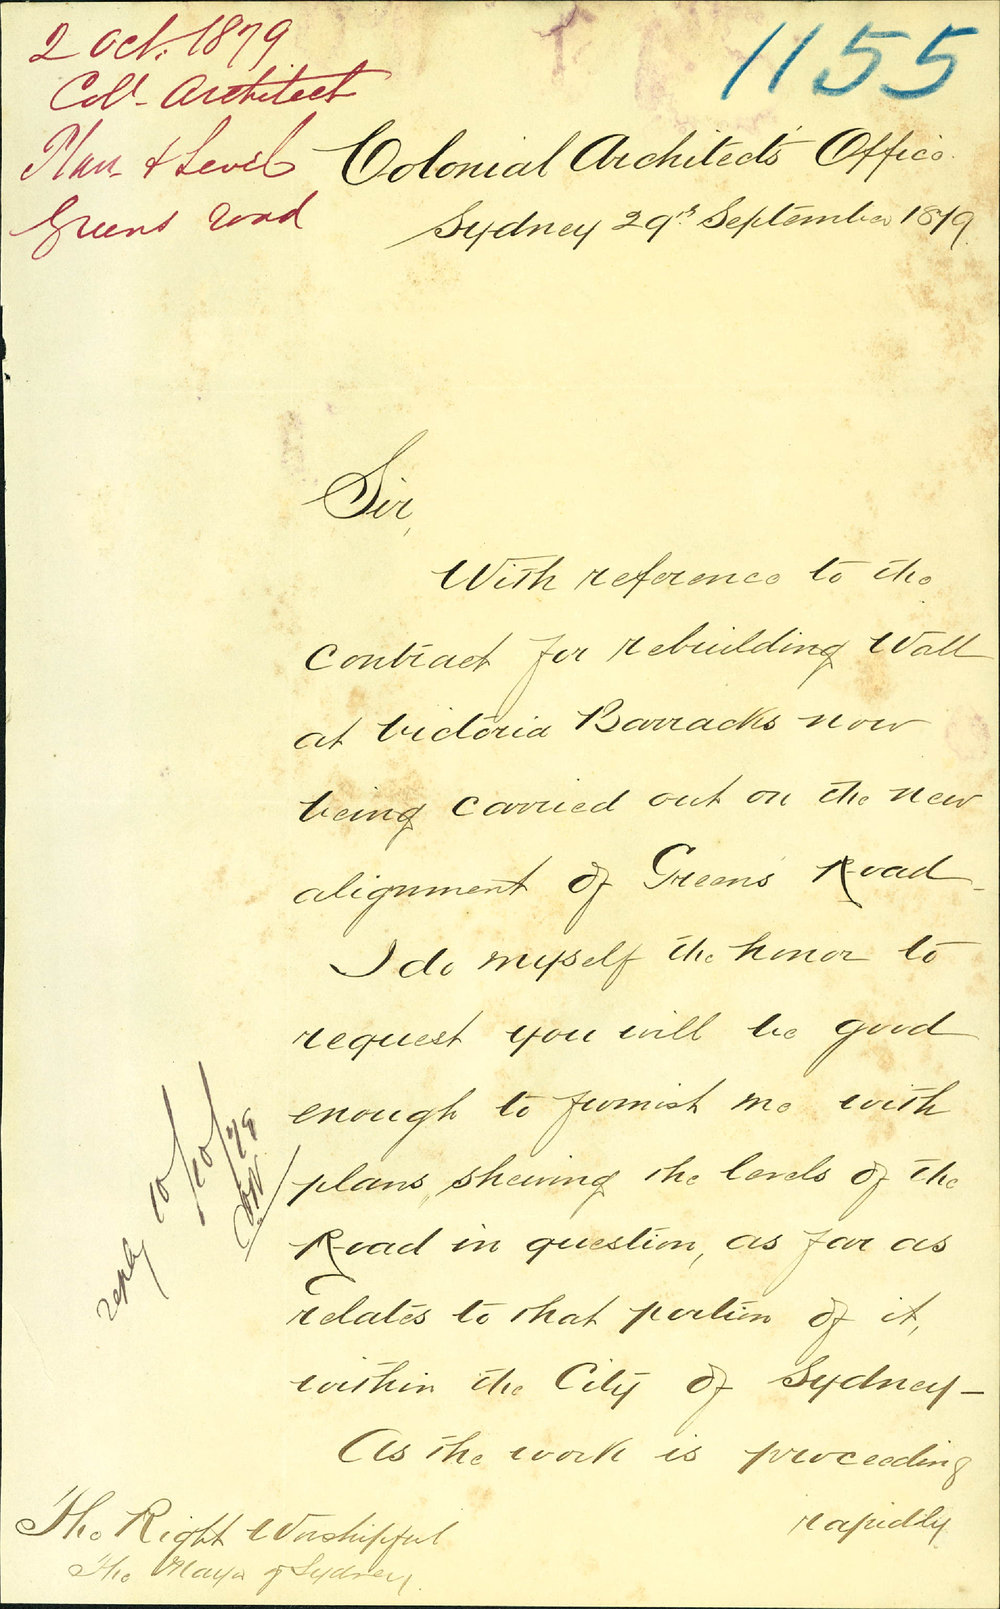 2 Oct. 1879
Coll. Architect
Plan & Level
Greens road
1155
Colonial Architect's Office
Sydney 29th September 1879.
Sir,
With reference to the
contract for rebuilding Wall
at Victoria Barracks now
being carried out on the new
alignment of Green's Road -
I do myself the honor to
request you will be good
enough to furnish me with
plans, shewing the levels of the
Road in question, as far as
relates to that portion of it,
within the City of Sydney -
As the work is proceeding
rapidly
reply 10/10/79
The Right Worshipful
The Mayor of Sydney.